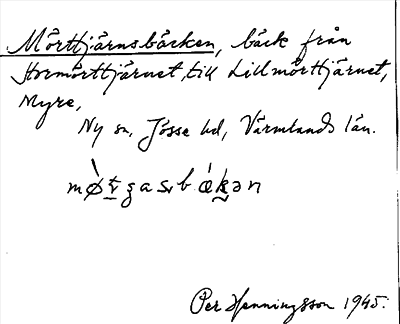 Mörttjärnsbäcken, bäck från
Stormörttjärnet, till Lillmörttjärnet,
Myre,
Ny sn, Jösse hd, Värmlands län.
Per Henningsson 1945.